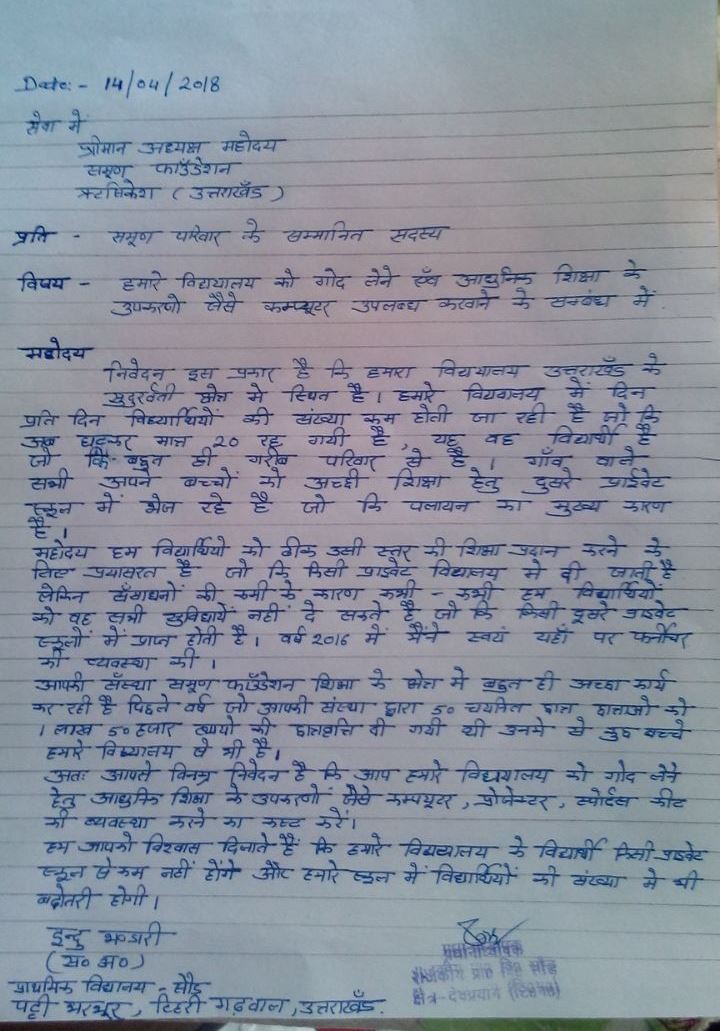 Date:- 14/04/2018
सेवा में
श्रीमान अध्यक्ष महोदय
समूण फाउँडेशन
ऋषिकेश (उत्तराखँड)
प्रति - समूण परिवार के सम्मानित सदस्य
विषय - हमारे विद्ययालय को गोद लेने एँव आधुनिक शिक्षा के
उपकरणो जैसे कम्प्यूटर उपलब्ध करवाने के सम्बंध में.
महोदय
निवेदन इस प्रकार है कि हमारा विद्ययालय उत्तराखँड के
सुदुरवर्ती क्षेत्र मे स्थित है। हमारे विद्ययालय में दिन
प्रति दिन विद्यार्थियों की संख्या कम होती जा रही है जो कि
अब घटकर मात्र 20 रह गयी है, यह वह विद्यार्थी है
जो कि बहुत ही गरीब परिवार से है। गाँव वाले
सभी अपने बच्चों को अच्छी शिक्षा हेतु दुसरे प्राईवेट
स्कूल में भेज रहे है जो कि पलायन का मुख्य कारण
है।
महोदय हम विद्यार्थियो को ठीक उसी स्तर की शिक्षा प्रदान करने के
लिए प्रयासरत है जो कि किसी प्राइवेट विद्यालय मे दी जाती है
लेकिन सँसाधनों की कमी के कारण कभी - कभी हम विद्यार्थियों
को वह सभी सुविधायें नहीं दे सकते है जो कि किसी दूसरे प्राइवेट
स्कूलों में प्राप्त होती है। वर्ष 2016 में मैंने स्वयं यहाँ पर फर्नीचर
की व्यवस्था की।
आपकी सँस्था समूण फाउँडेशन शिक्षा के क्षेत्र मे बहुत ही अच्छा कार्य
कर रही है पिछले वर्ष जो आपकी संस्था द्वारा 50 चयनित छात्र छात्राओ को
1 लाख 50 हजार रुपयो की छात्रवृत्ति दी गयी थी उनमे से कुछ बच्चे
हमारे विध्यालय से भी है।
अतः आपसे विनम्र निवेदन है कि आप हमारे विद्ययालय को गोद लेने
हेतु आधुनिक शिक्षा के उपकरणों जैसे कम्पयूटर, प्रोजेक्टर, स्पोर्टस कीट
की व्यवस्था करने का कष्ट करें।
हम आपको विश्वास दिलाते हैं कि हमारे विद्यालय के विद्यार्थी किसी प्राइवेट
स्कूल से कम नहीं होंगे और हमारे स्कूल में विद्यार्थियों की संख्या मे भी
बढोतरी होगी।
इन्दु भण्डारी
(स० अ०)
प्राथमिक विद्यालय - सौड़
पट्टी भरपूर, टिहरी गढ़वाल, उत्तराखँड.
प्रधानाध्यापक
क्षेत्र-देवप्रयाग (टि०ग०)